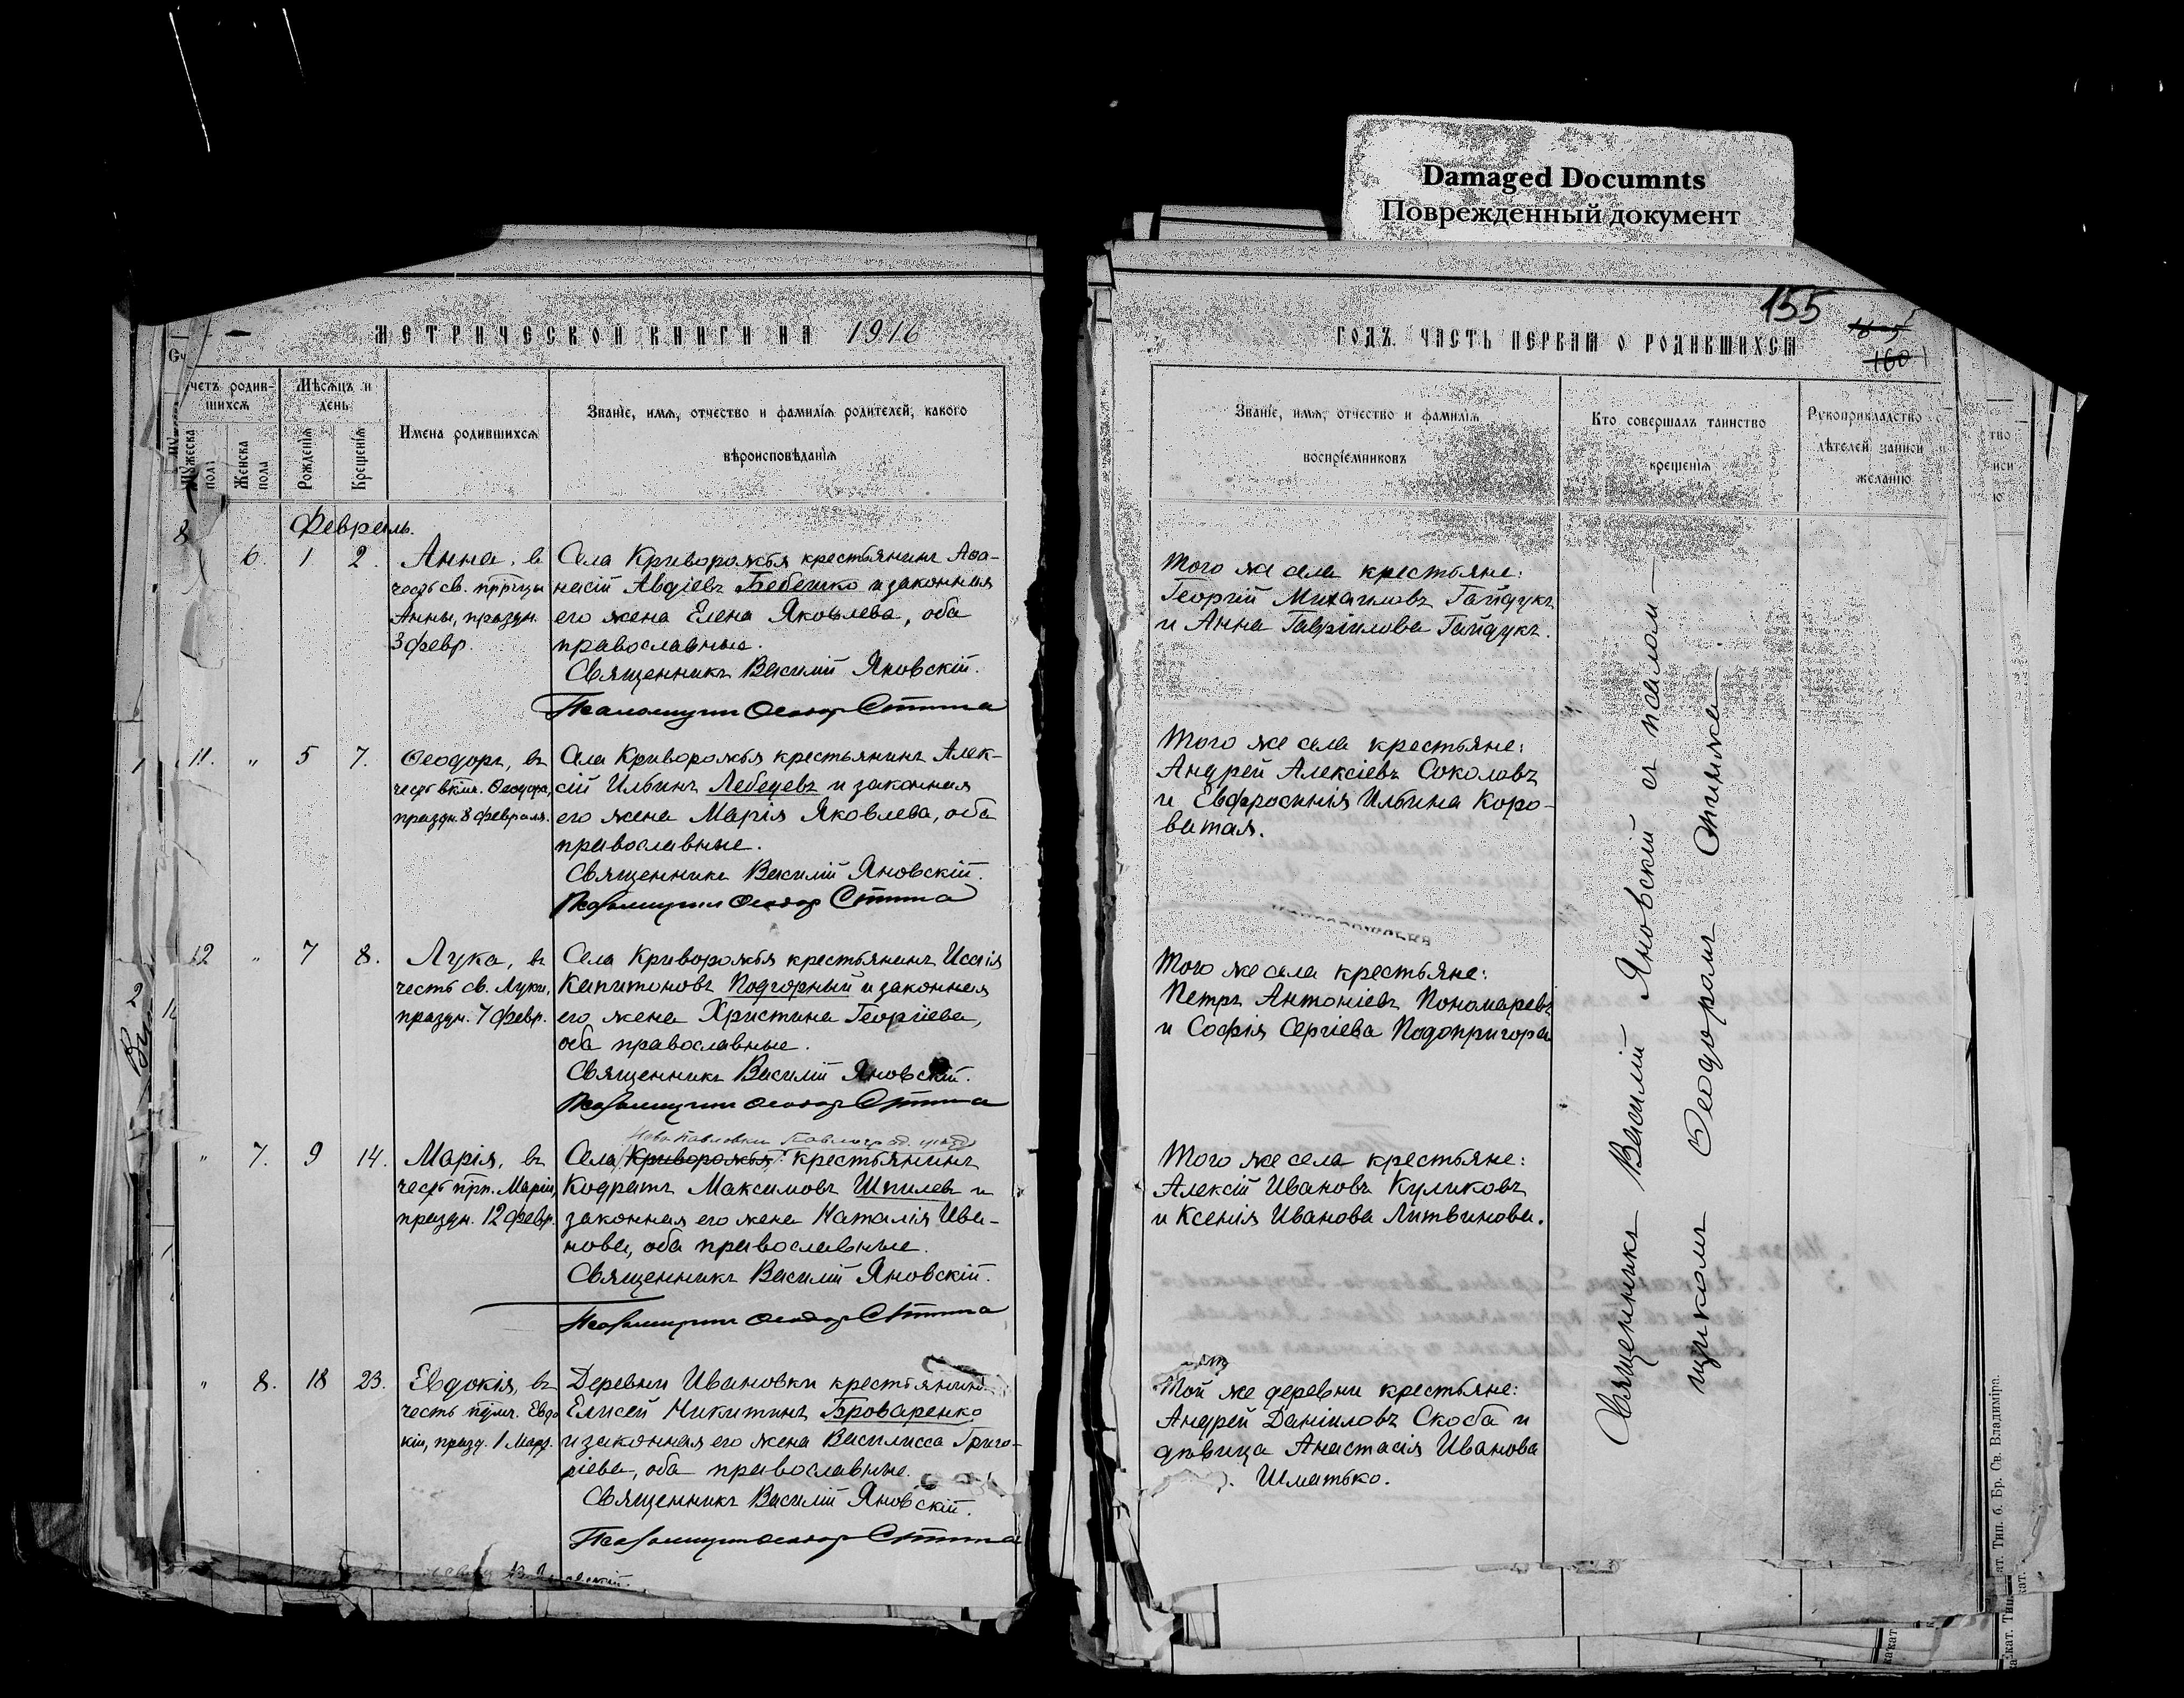 Damaged Documnts
Поврежденный документ
155
160
МЕТРИЧЕСКОЙ КНИГИ НА 1916
ГОДЪ ЧАСТЬ ПЕРВАЯ О РОДИВШИХСЯ
четъ родив-
шихся
Мужеска пола
Женска пола
Мѣсяцъ и день
Рожденія
Крещенія
Имена родившихся
Званіе, имя, отчество и фамилія родителей, какого
вѣроисповѣданія
Званіе, имя, отчество и фамилія
воспріемниковъ
Кто совершалъ таинство
крещенія
Рукоприкладство
дѣтелей записи
желанію
Февраль.
6. 1 2.
Анна, въ
честь св. прр҃цы
Анны, праздн.
3 февр.
Села Криворожья крестьянинъ Аѳа-
насій Авдіевъ Бебешко и законная
его жена Елена Яковлева, оба
православные.
Священникъ Василій Яновскій.
Того же села крестьяне:
Георгій Михаиловъ Гайдукъ
и Анна Гавріилова Гайдукъ.
11. " 5 7.
Ѳеодоръ, въ
честь вкмч. Ѳеодора,
праздн. 8 февраля.
Села Криворожья крестьянинъ Алек-
сій Ильинъ Лебедевъ и законная
его жена Марія Яковлева, оба
православные.
Священникъ Василій Яновскій.
Того же села крестьяне:
Андрей Алексіевъ Соколовъ
и Евфросинія Ильина Коро-
ватая.
12 " 7 8.
Лука, въ
честь св. Луки,
праздн. 7 февр.
Села Криворожья крестьянинъ Исаія
Капитоновъ Подгорный и законная
его жена Христина Георгіева,
оба православные.
Священникъ Василій Яновскій.
Того же села крестьяне:
Петръ Антоніевъ Пономаревъ
и Софія Сергіева Подопригора
" 7. 9 14.
Марія, въ
честь прп. Маріи,
праздн. 12 февр.
Ново Павловки Павлоград. уезда
Села Криворожья крестьянинъ
Кодратъ Максимовъ Шпилевъ и
законная его жена Наталія Ива-
нова, оба православные.
Священникъ Василій Яновскій.
Того же села крестьяне:
Алексій Ивановъ Куликовъ
и Ксенія Иванова Литвинова.
" 8. 18 23.
Евдокія, въ
честь прмч. Евдо
кіи, празд. 1 Март.
Деревни Ивановки крестьянинъ
Елисей Никитинъ Броваренко
и законная его жена Василисса Григо-
ріева, оба православные.
Священникъ Василій Яновскій.
Той же деревни крестьяне:
Андрей Даніиловъ Скоба и
дѣвица Анастасія Иванова
Шматько.
Священникъ Василій Яновскій съ псалом-
щикомъ Ѳеодоромъ
ат. Тип. б. Бр. Св. Владиміра.